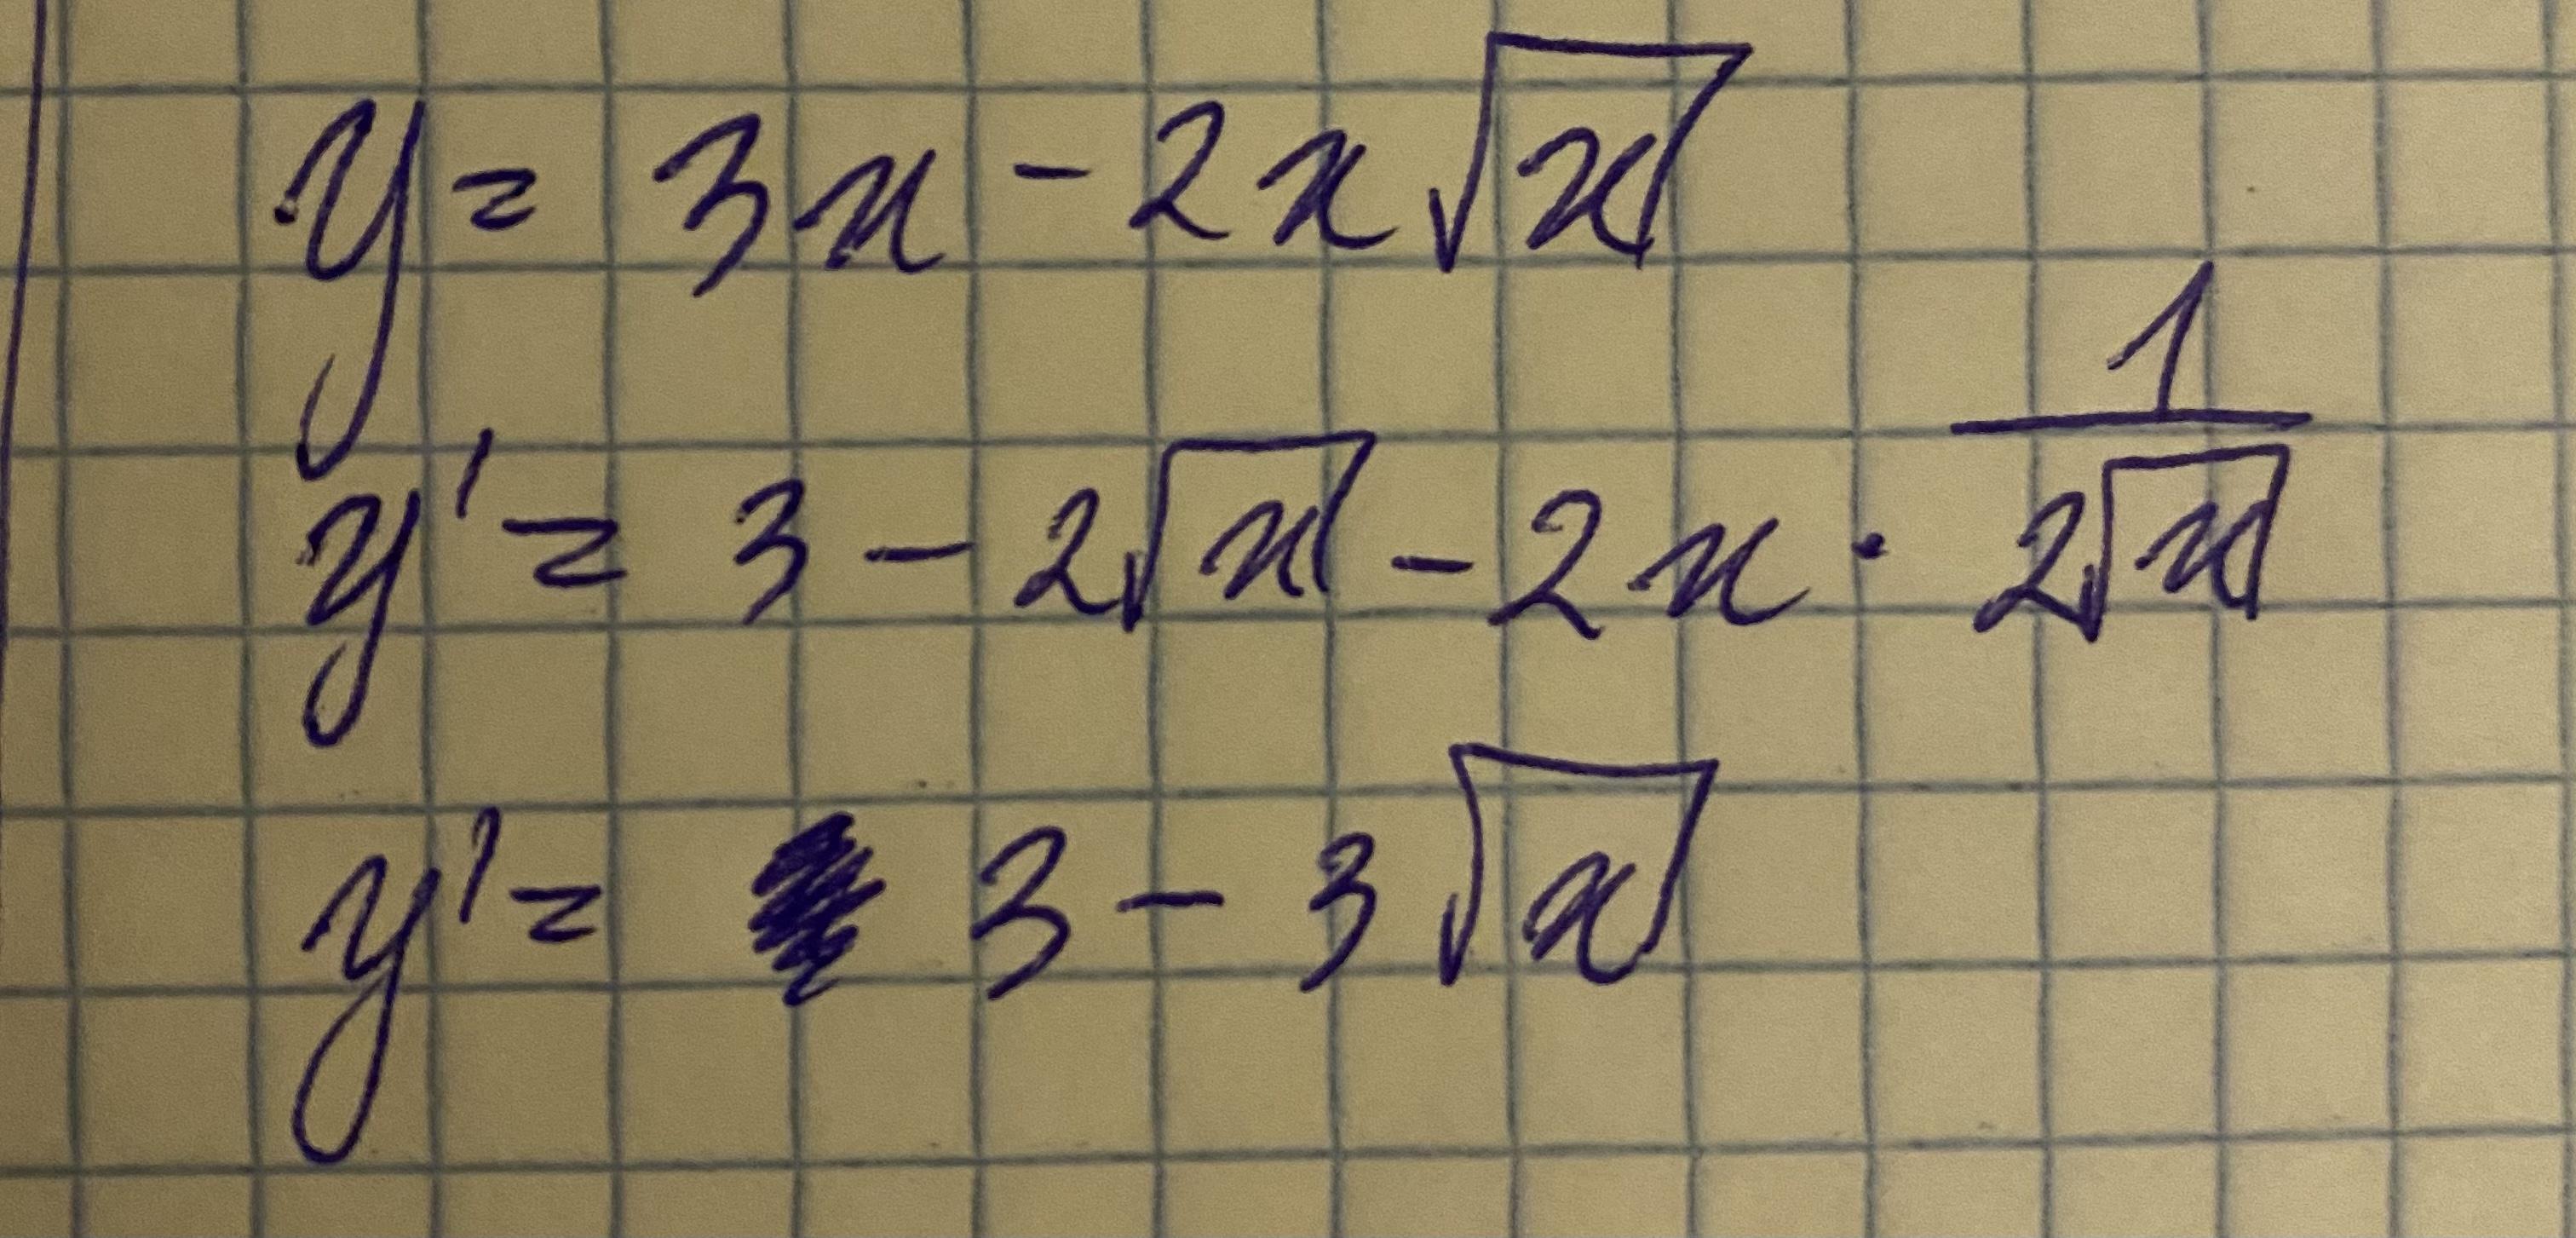 y = 3x - 2x√x
y' = 3 - 2√x - 2x · 1/(2√x)
y' = 3 - 3√x